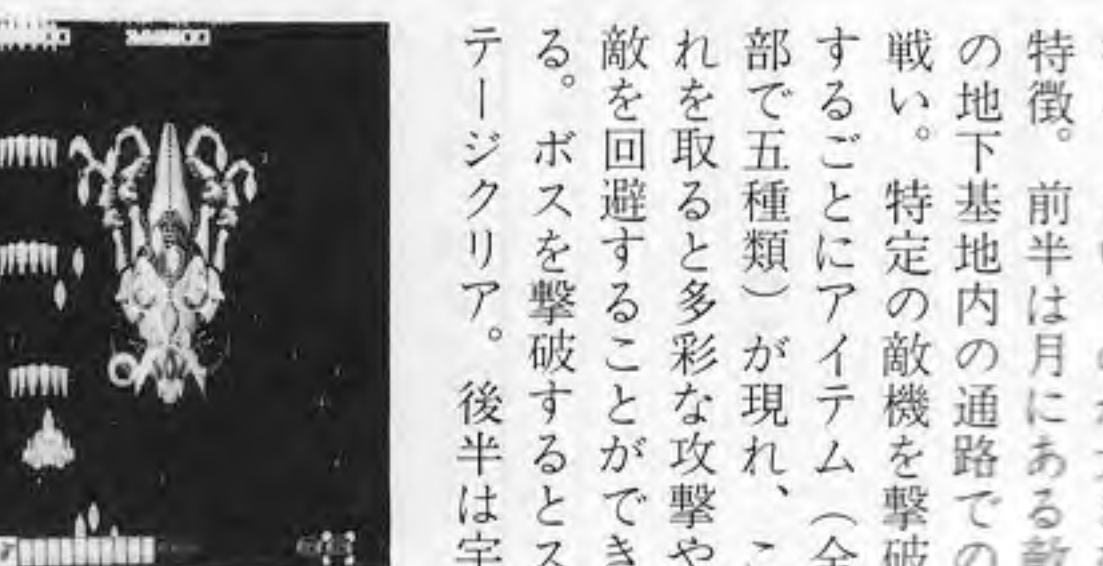 特徴。前半は月にある敵
の地下基地内の通路での
戦い。特定の敵機を撃破
するごとにアイテム（全
部で五種類）が現れ、こ
れを取ると多彩な攻撃や
敵を回避することができ
る。ボスを撃破するとス
テージクリア。後半は宇